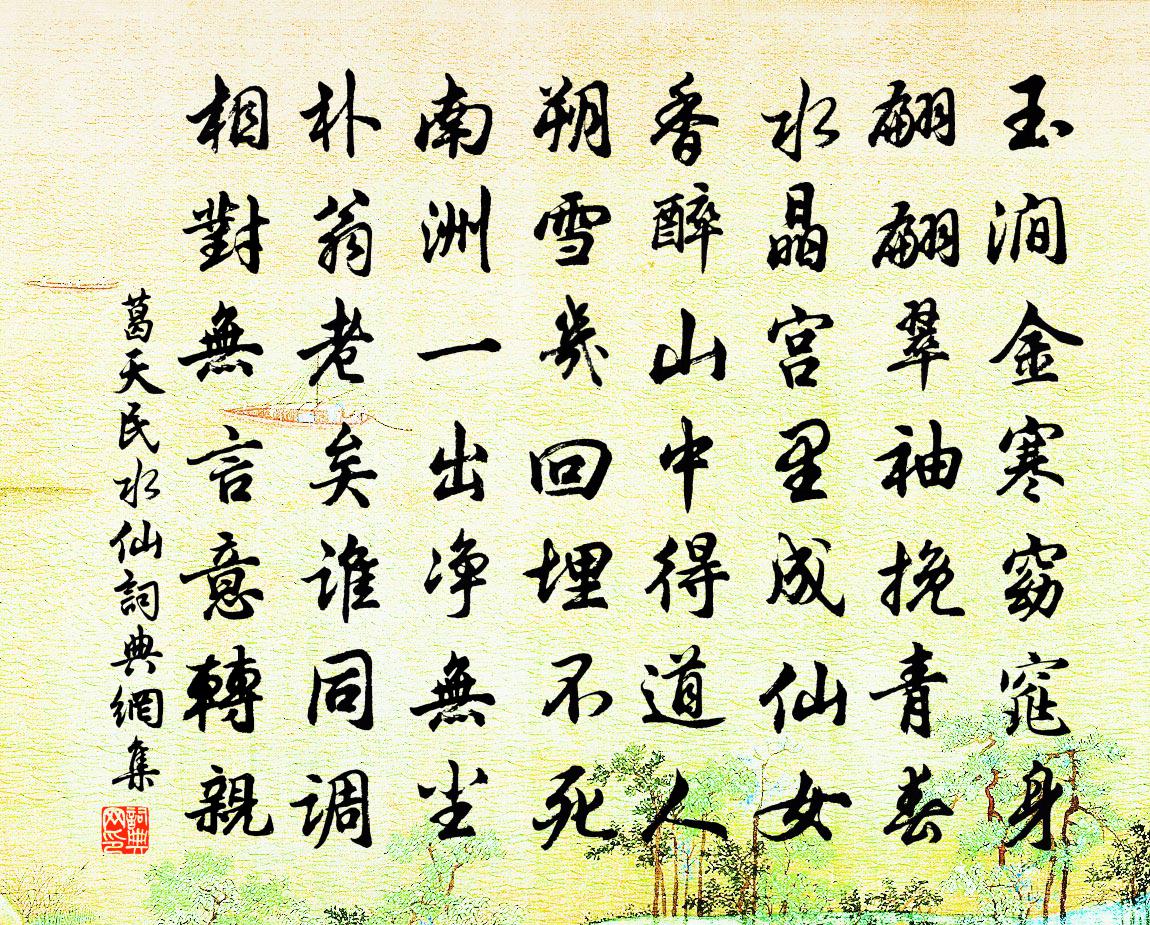 玉涧金寒窈窕身
翩翩翠袖挽青春
水晶宫里成仙女
香醉山中得道人
朔雪几回埋不死
南洲一出净無尘
朴翁老矣谁同调
相對無言意轉親
葛天民水仙詞典網集
詞典网印